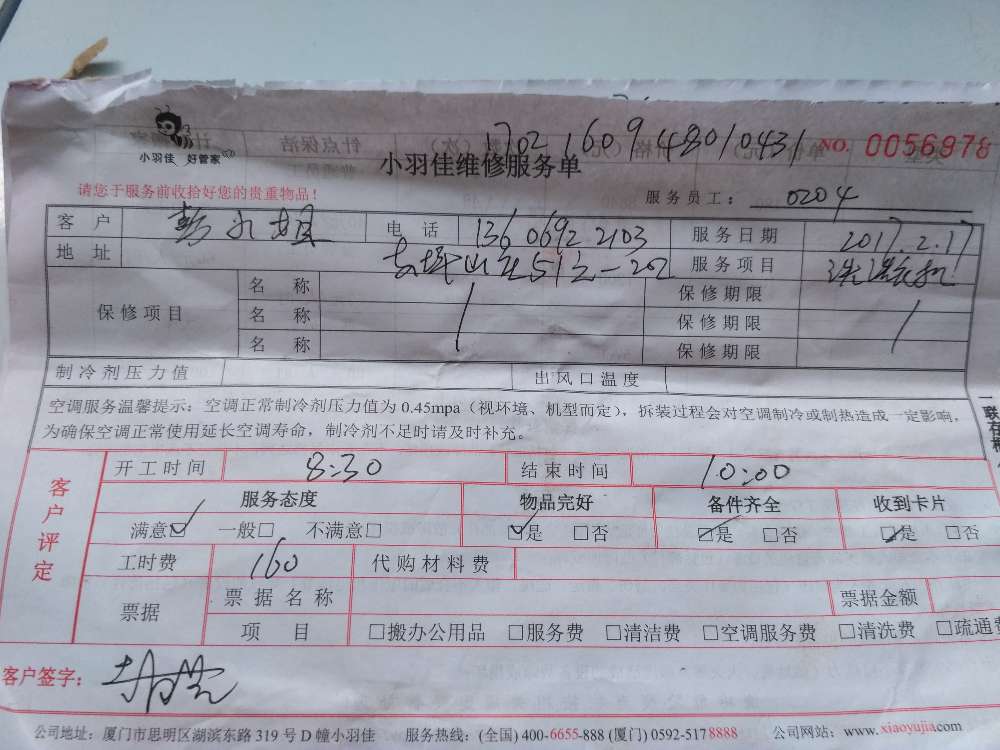 1702160948010431
小羽佳 好管家
小羽佳维修服务单
NO. 0056978
请您于服务前收拾好您的贵重物品！
服务员工： 0204
客户 电话 13606922103 服务日期 2017.2.17
地址 51之一202 服务项目 洗洗衣机
保修项目 名称 / 保修期限 /
名称 保修期限
名称 保修期限
制冷剂压力值 出风口温度
空调服务温馨提示：空调正常制冷剂压力值为 0.45mpa（视环境、机型而定），拆装过程会对空调制冷或制热造成一定影响，
为确保空调正常使用延长空调寿命，制冷剂不足时请及时补充。
客户评定
开工时间 8:30 结束时间 10:00
服务态度 物品完好 备件齐全 收到卡片
满意☑ 一般□ 不满意□ ☑是 □否 ☑是 □否 ☑是 □否
工时费 160 代购材料费
票据 票据名称 票据金额
项目 □搬办公用品 □服务费 □清洁费 □空调服务费 □清洗费 □疏通费
客户签字：
公司地址：厦门市思明区湖滨东路 319 号 D 幢小羽佳 服务热线：(全国) 400-6655-888 (厦门) 0592-5178888 公司网站：www.xiaoyujia.com